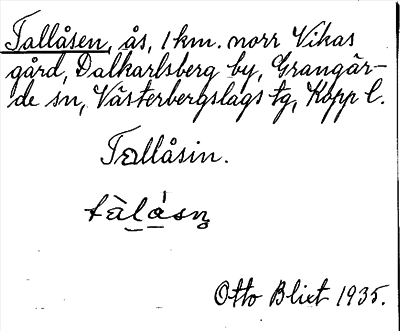 Tallåsen, ås, 1 km. norr Vikas
gård, Dalkarlsberg by, Grangär-
de sn, Västerbergslags tg, Kopp l.
Tallåsin.
tàlåsn̥
Otto Blixt 1935.